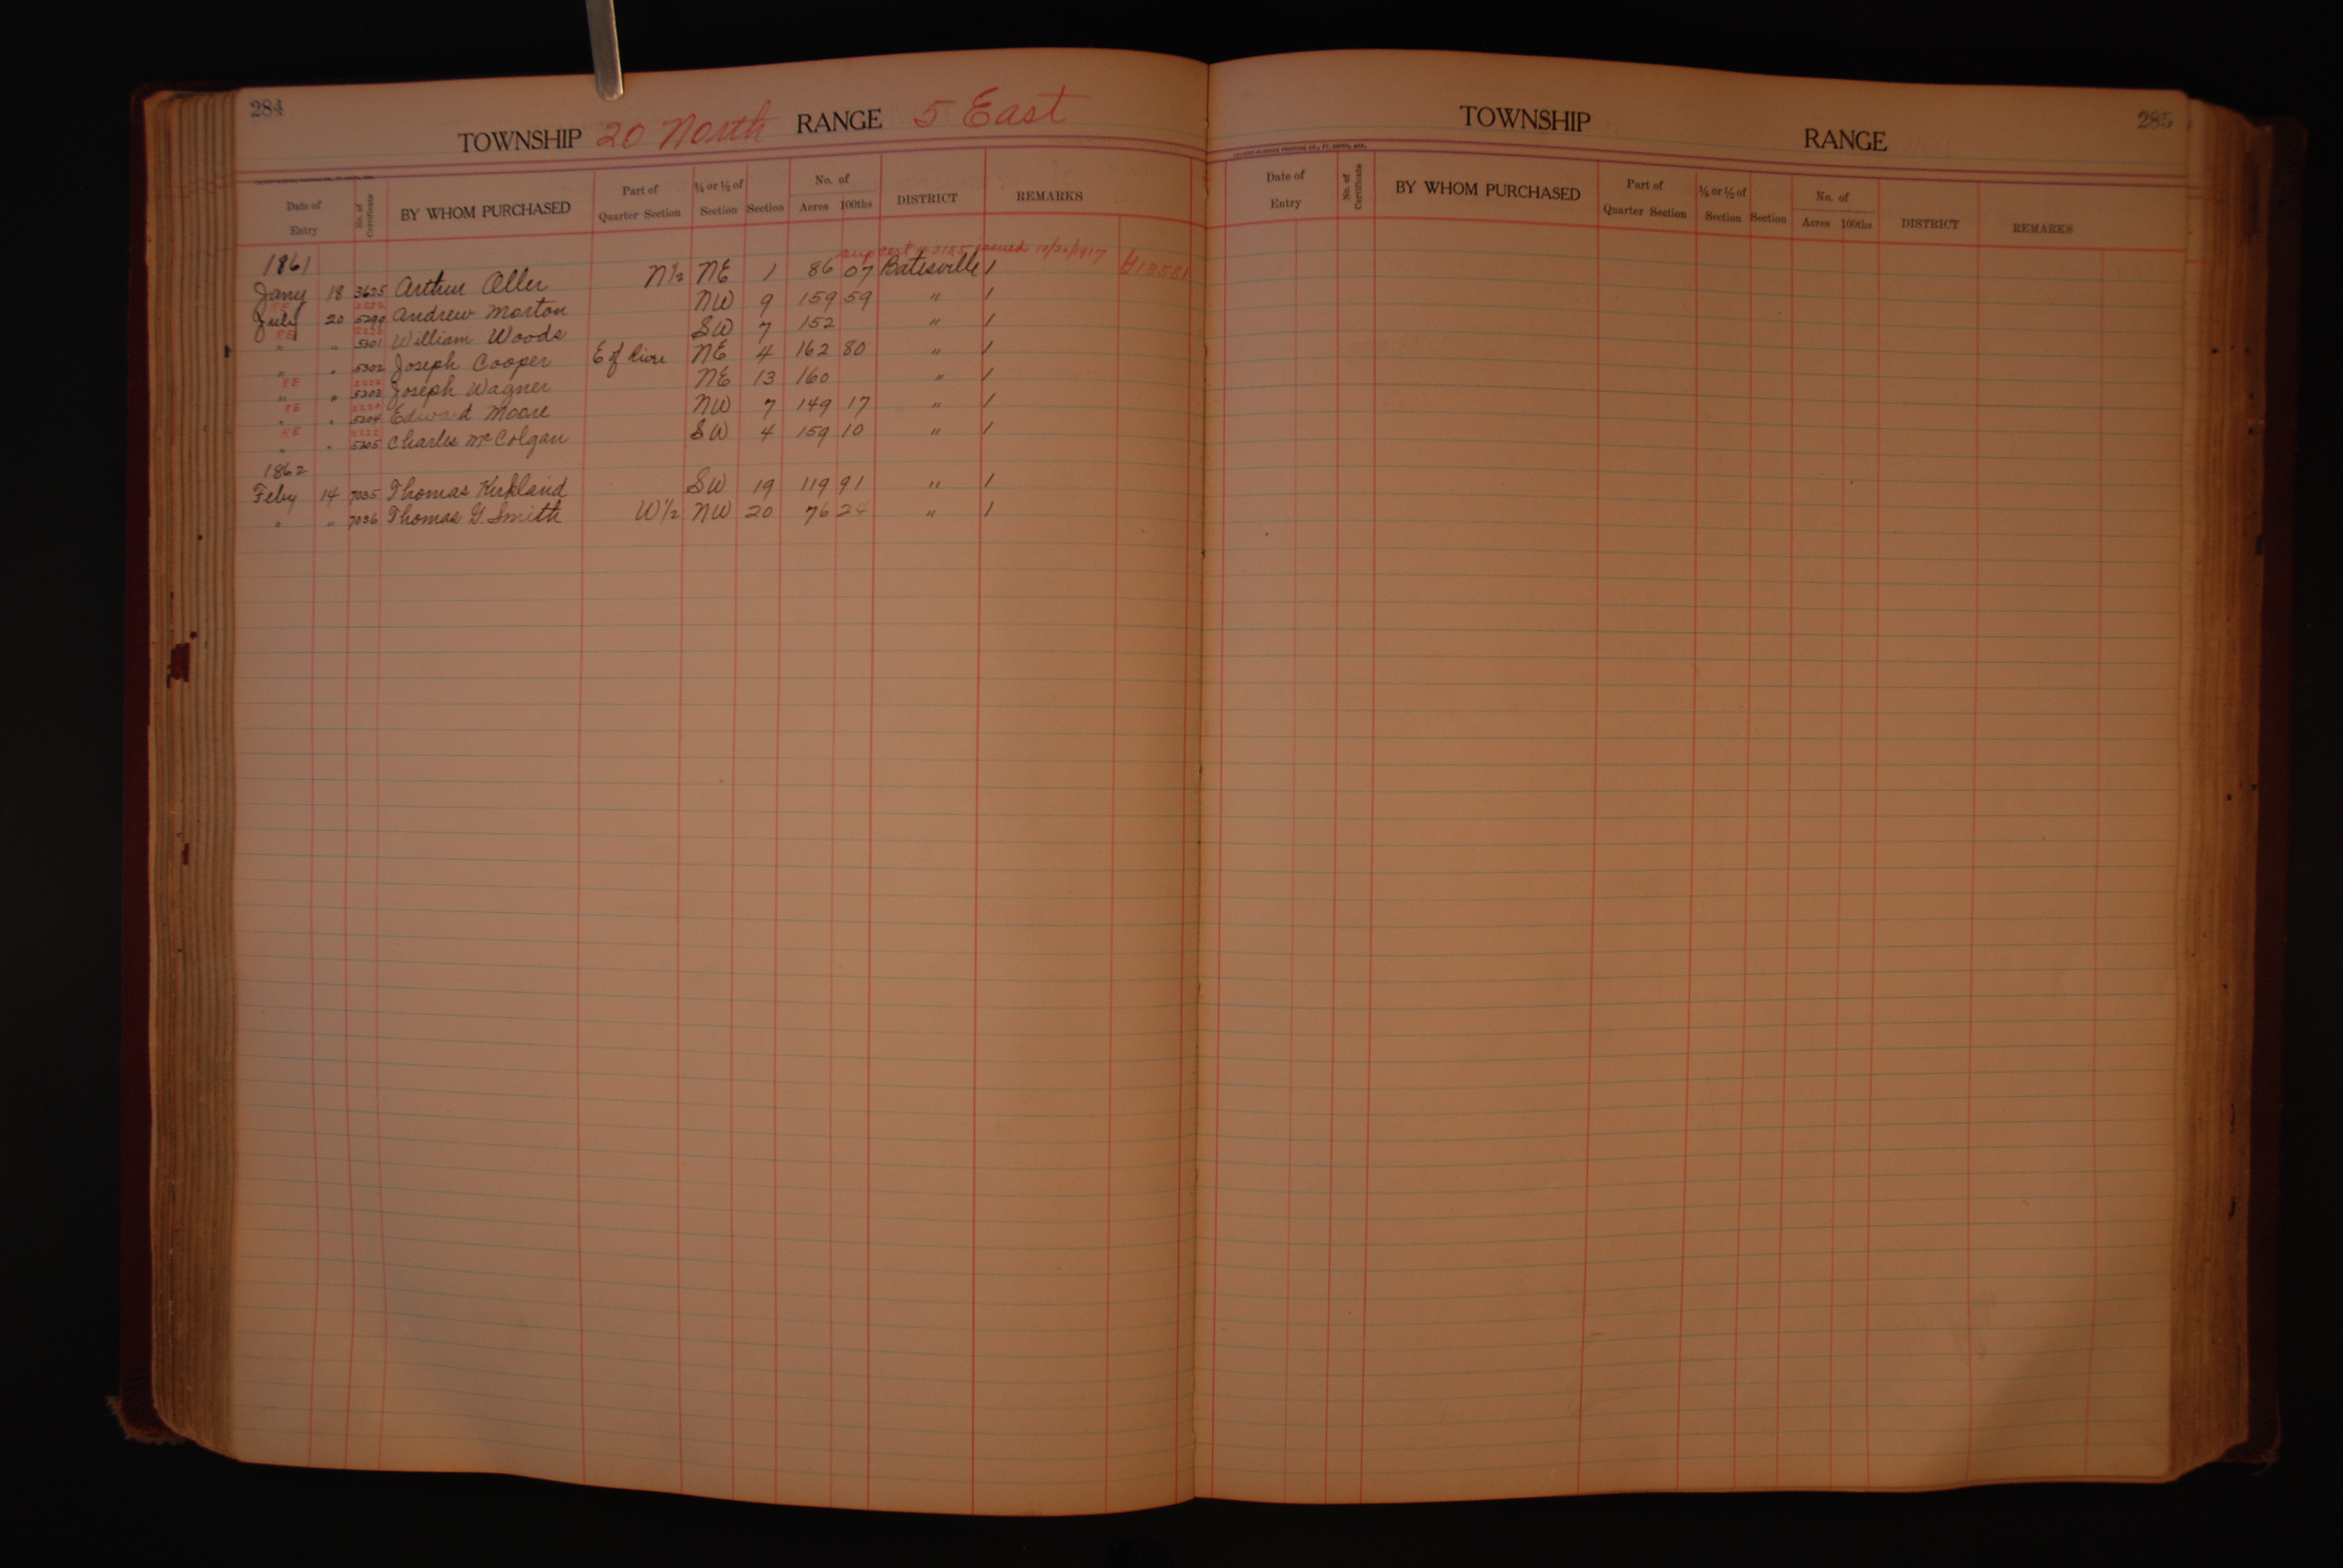 284
TOWNSHIP 20 North RANGE 5 East
Date of Entry No. of Certificate BY WHOM PURCHASED Part of Quarter Section ¼ or ½ of Section Section No. of Acres 100ths DISTRICT REMARKS
1861 issued 10/30/1917
Jany 18 3625 Arthur Oller N½ NE 1 86 07 Batesville /
July 20 Andrew Morton NW 9 159 59 " /
" " 5301 William Woods SW 7 152 " /
" " 5302 Joseph Cooper E of River NE 4 162 80 " /
" " 5303 Joseph Wagner NE 13 160 " /
" " 5304 Edward Moore NW 7 149 17 " /
" " 5305 Charles McColgan SW 4 159 10 " /
1862
Feby 14 7035 Thomas Kirkland SW 19 119 91 " /
" " 7036 Thomas G. Smith W½ NW 20 76 24 " /
TOWNSHIP RANGE
285
Date of Entry No. of Certificate BY WHOM PURCHASED Part of Quarter Section ¼ or ½ of Section Section No. of Acres 100ths DISTRICT REMARKS